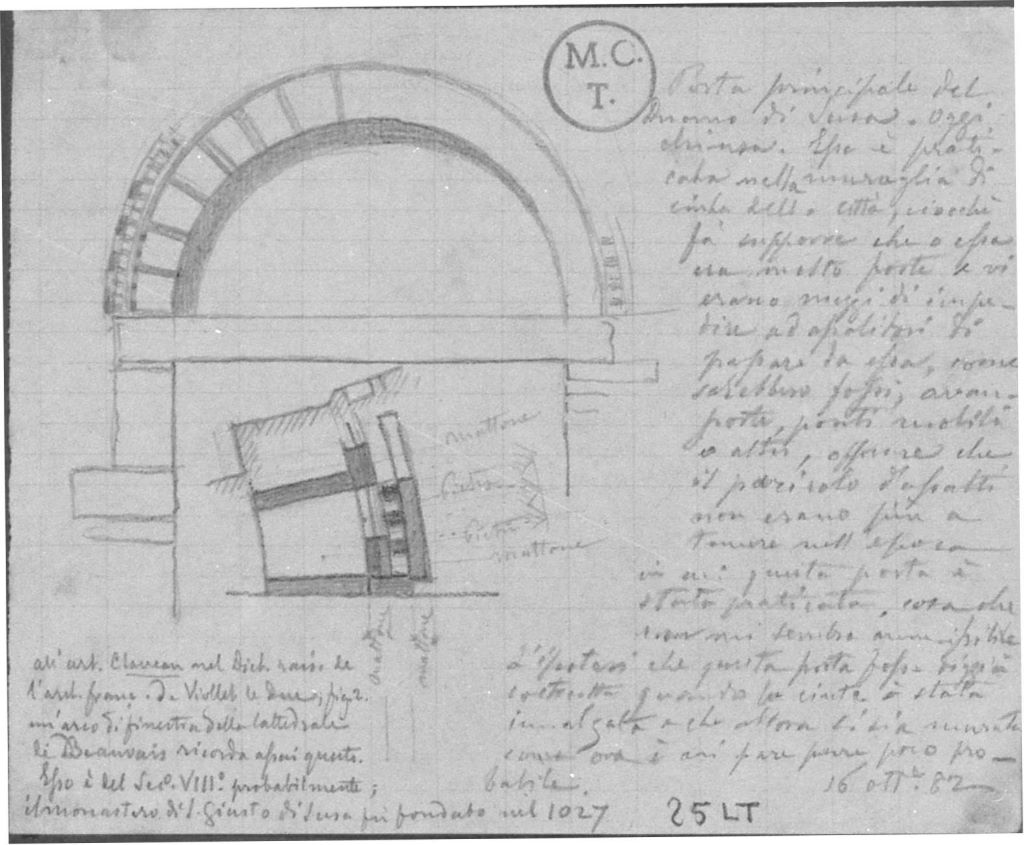 M.C.
T.
Porta principale del
Duomo di Susa. Oggi
chiusa. Esso è prati-
cata nella muraglia di
cinta della città, ciocchè
fà supporre che o essa
era molto forte e vi
erano mezzi di impe-
dire ad assalitori di
passare da essa, come
sarebbero fossi, avan-
porte, ponti mobili
o altri, oppure che
il pericolo d'assalti
non erano più a
temere nell'epoca
in cui questa porta è
stata praticata, cosa che
non mi sembra ammissibile
L'ipotesi che questa porta foss. diggià
costrutta quando la cinta è stata
innalzata e che allora si sia murata
come ora è mi pare pure poco pro-
babile.
16 ott. 82
mattone
Pietra
Pietra
mattone
mattone
mattone
all'art. Claveau nel Dict. rais. de
l'arch. franç. da Viollet le Duc, fig. 2.
un'arco di finestra della Cattedrale
di Beauvais ricorda assai questo.
Esso è del Seco. VIIIo. probabilmente;
il monastero di S. Giusto di Susa fu fondato nel 1027
25 LT